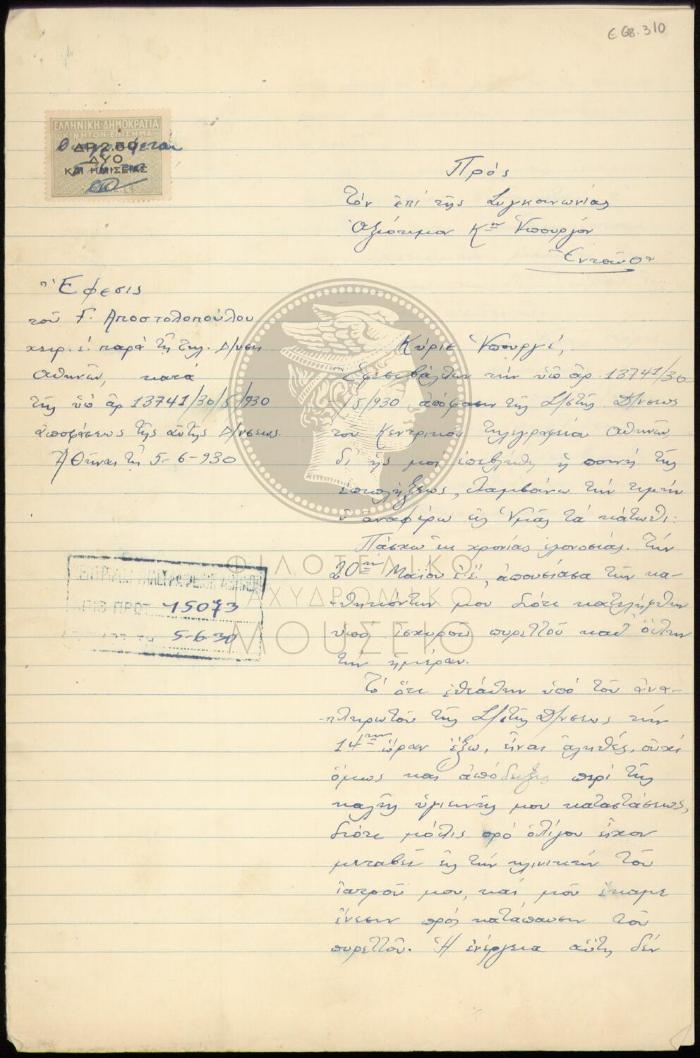 Ε 68.310
ΕΛΛΗΝΙΚΗ ΔΗΜΟΚΡΑΤΙΑ
ΚΙΝΗΤΟΝ ΕΠΙΣΗΜΑ
ΔΡΑΧΜΑΙ
ΔΥΟ
ΚΑΙ ΗΜΙΣΕΙΑΣ
Πρός
τόν ἐπί τῆς Συγκοινωνίας
Ἀξιότιμον Κον Ὑπουργόν
Ἐνταῦθα
Ἔφεσις
τοῦ Γ. Ἀποστολοπούλου
χειρ. ἑ. παρά τῇ τηλ. Δ/νσει
Ἀθηνῶν, κατά
τῆς ὑπ' ἀρ 13741/30/5/930
ἀποφάσεως τῆς αὐτῆς Δ/νσεως.
Ἀθῆναι τῇ 5-6-930
Κύριε Ὑπουργέ,
τήν ὑπ' ἀρ. 13741/30
/5/930 ἀπόφασιν τῆς Δ/νσεως
τοῦ Κεντρικοῦ Τηλεγραφείου Ἀθηνῶν
δι' ἧς μοι ἐπεβλήθη ἡ ποινή τῆς
ἐπιπλήξεως, λαμβάνω τήν τιμήν
ν' ἀναφέρω εἰς Ὑμᾶς τά κάτωθι:
Πάσχω ἐκ χρονίας ἑλονοσίας. Τήν
20ην Μαΐου ἐ.ἔ. ἀπουσίασα τῶν κα-
θηκόντων μου διότι κατελήφθην
ὑπό ἰσχυροῦ πυρεττοῦ καθ' ὅλην
τήν ἡμέραν.
Τό ὅτι ἐθεάθην ὑπό τοῦ ἀνα-
πληρωτοῦ τῆς Δ/νσεως τήν
14ην ὥραν ἔξω, εἶναι ἀληθές, οὐχί
ὅμως καί ἀπόδειξις περί τῆς
καλῆς ὑγιεινῆς μου καταστάσεως,
διότι μόλις πρό ὀλίγου εἶχον
μεταβεῖ εἰς τήν κλινικήν τοῦ
ἰατροῦ μου, καί μοῦ ἔκαμε
ἔνεσιν πρός κατάπαυσιν τοῦ
πυρεττοῦ. Ἡ ἐνέργεια αὕτη δέν
ΑΡΙΘ ΠΡΩΤ. 15073
5-6-30
ΦΙΛΟΤΕΛΙΚΟ
ΤΑΧΥΔΡΟΜΙΚΟ
ΜΟΥΣΕΙΟ